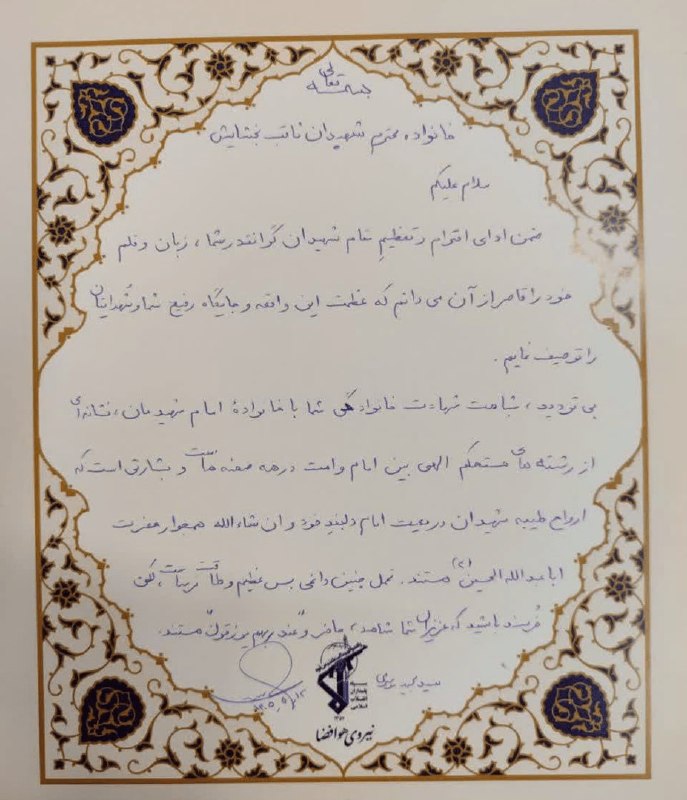 بسمه تعالی
خانواده محترم شهیدان نائب بخشایش
سلام علیکم
ضمن ادای احترام و تعظیم مقام شهیدان گرانقدر شما، زبان و قلم
خود را قاصر از آن می دانم که عظمت این واقعه و جایگاه رفیع شما و شهدایتان
را توصیف نمایم.
بی تردید، شباهت شهادت خانوادگی شما با خانوادهٔ امام شهیدمان، نشانه‌ای
از رشته های مستحکم الهی بین امام و امت در همه صحنه هاست و بشارتی است که
ارواح طیبه شهیدان در معیت امام دلبند خود و ان شاءالله همجوار حضرت
اباعبدالله الحسین (ع) هستند. تحمل چنین داغی بس عظیم و طاقت فرساست، لکن
خُرسند باشید که عزیزان شما شاهد، حاضر و "عند ربهم یرزقون" هستند.
سید مجید موسوی
سپاه
پاسداران
انقلاب
اسلامی
نیروی هوافضا